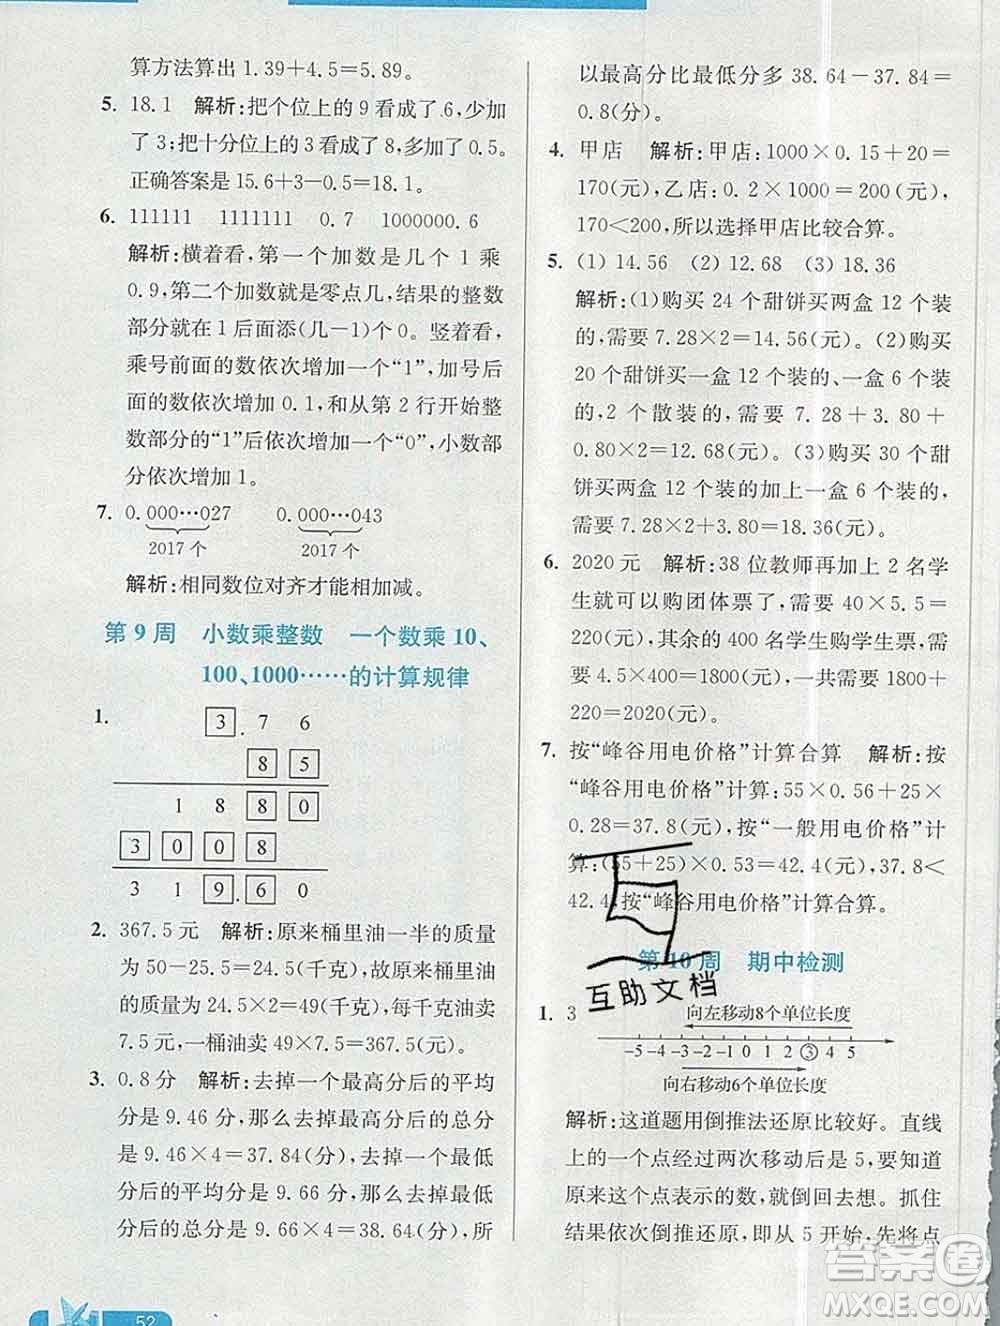 算方法算出 1.39+4.5=5.89。
5. 18.1 解析:把个位上的 9 看成了 6,少加
了 3;把十分位上的 3 看成了 8,多加了 0.5。
正确答案是 15.6+3-0.5=18.1。
6. 111111 1111111 0.7 1000000.6
解析:横着看,第一个加数是几个 1 乘
0.9,第二个加数就是零点几,结果的整数
部分就在 1 后面添(几-1)个 0。竖着看,
乘号前面的数依次增加一个“1”,乘号后
面的数依次增加 0.1,和从第 2 行开始整
数部分的“1”后依次增加一个“0”,小数部
分依次增加 1。
7. 0.000…027 0.000…043
2017 个 2017 个
解析:相同数位对齐才能相加减。
第 9 周 小数乘整数 一个数乘 10、
100、1000……的计算规律
1. 3.76
85
1880
3008
319.60
2. 367.5 元 解析:原来桶里油一半的质量
为 50-25.5=24.5(千克),故原来桶里油
的质量为 24.5×2=49(千克),每千克油卖
7.5 元,一桶油卖 49×7.5=367.5(元)。
3. 0.8 分 解析:去掉一个最高分后的平均
分是 9.46 分,那么去掉最高分后的总分
是 9.46×4=37.84(分)。去掉一个最低
分后的平均分是 9.66 分,那么去掉最低
分后的总分是 9.66×4=38.64(分),所
以最高分比最低分多 38.64-37.84=
0.8(分)。
4. 甲店 解析:甲店:1000×0.15+20=
170(元),乙店:0.2×1000=200(元),
170<200,所以选择甲店比较合算。
5. (1) 14.56 (2) 12.68 (3) 18.36
解析:(1)购买 24 个甜饼买两盒 12 个装
的,需要 7.28×2=14.56(元)。(2)购买
20 个甜饼买一盒 12 个装的、一盒 6 个装
的,2 个散装的,需要 7.28+3.80+
0.80×2=12.68(元)。(3)购买 30 个甜
饼买两盒 12 个装的加上一盒 6 个装的,
需要 7.28×2+3.80=18.36(元)。
6. 2020 元 解析:38 位教师再加上 2 名学
生就可以购团体票了,需要 40×5.5=
220(元),其余的 400 名学生购学生票,需要
4.5×400=1800(元),一共需要 1800+
220=2020(元)。
7. 按“峰谷用电价格”计算合算 解析:按
“峰谷用电价格”计算:55×0.56+25×
0.28=37.8(元),按“一般用电价格”计
算:(55+25)×0.53=42.4(元),37.8<
42.4,按“峰谷用电价格”计算合算。
第 10 周 期中检测
互助文档
1. 3
向左移动8个单位长度
-5 -4 -3 -2 -1 0 1 2 3 4 5
向右移动6个单位长度
解析:这道题用倒推法还原比较好。直线
上的一个点经过两次移动后是 5,要知道
原来这个点表示的数,就倒回去想。抓住
结果依次倒推还原,即从 5 开始,先将点
52
答案圈
MXQE.COM